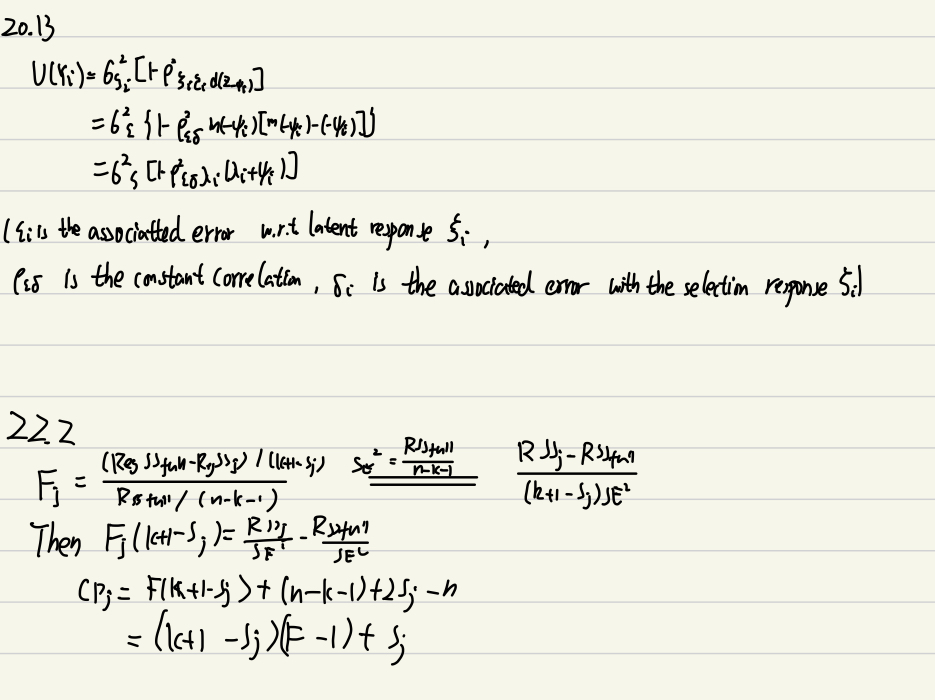 20.13
V(Yi) = σ²ξi [1-ρ²ξiζi d(z-ψi)]
= σ²ε {1-ρ²εδ m(-ψi)[m(-ψi)-(-ψi)]}
= σ²ξ [1-ρ²εδ λi (λi+ψi)]
(εi is the associatted error w.r.t latent response ξi ,
ρεδ is the constant correlation , δi is the associated error with the selection response ζi)
22.2
Fj = (RegSSfull-RegSSj) / (k+1-Sj) / RSSfull / (n-k-1) SE² = RSSfull / n-k-1 RSSj - RSSfull / (k+1-Sj)SE²
Then Fj(k+1-Sj) = RSSj / SE² - RSSfull / SE²
CPj = F(k+1-Sj) + (n-k-1)+2Sj-n
= (k+1 -Sj)(F -1) + Sj